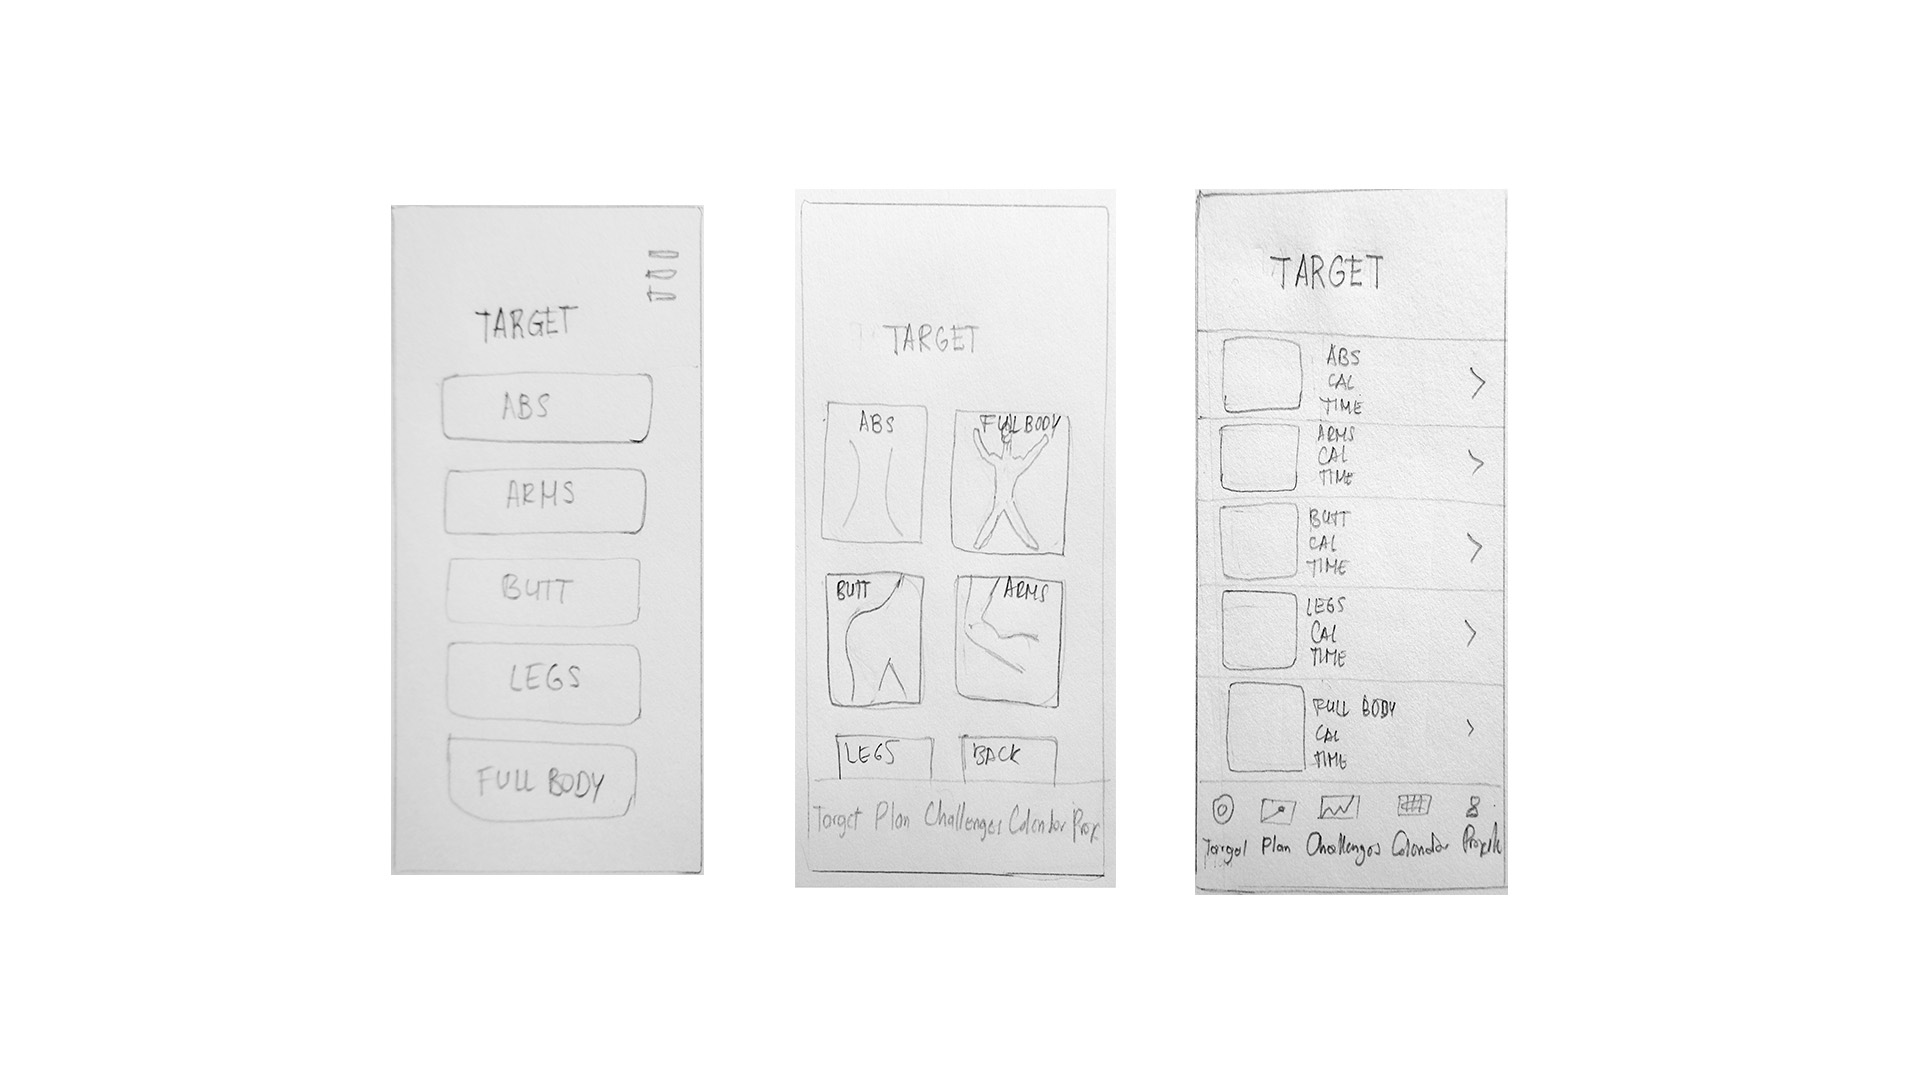 TARGET
ABS
ARMS
BUTT
LEGS
FULL BODY
TARGET
ABS
FULL BODY
BUTT
ARMS
LEGS
BACK
Target Plan Challenges Calendar
TARGET
ABS
CAL
TIME
ARMS
CAL
TIME
BUTT
CAL
TIME
LEGS
CAL
TIME
FULL BODY
CAL
TIME
Target Plan Challenges Calendar Profile